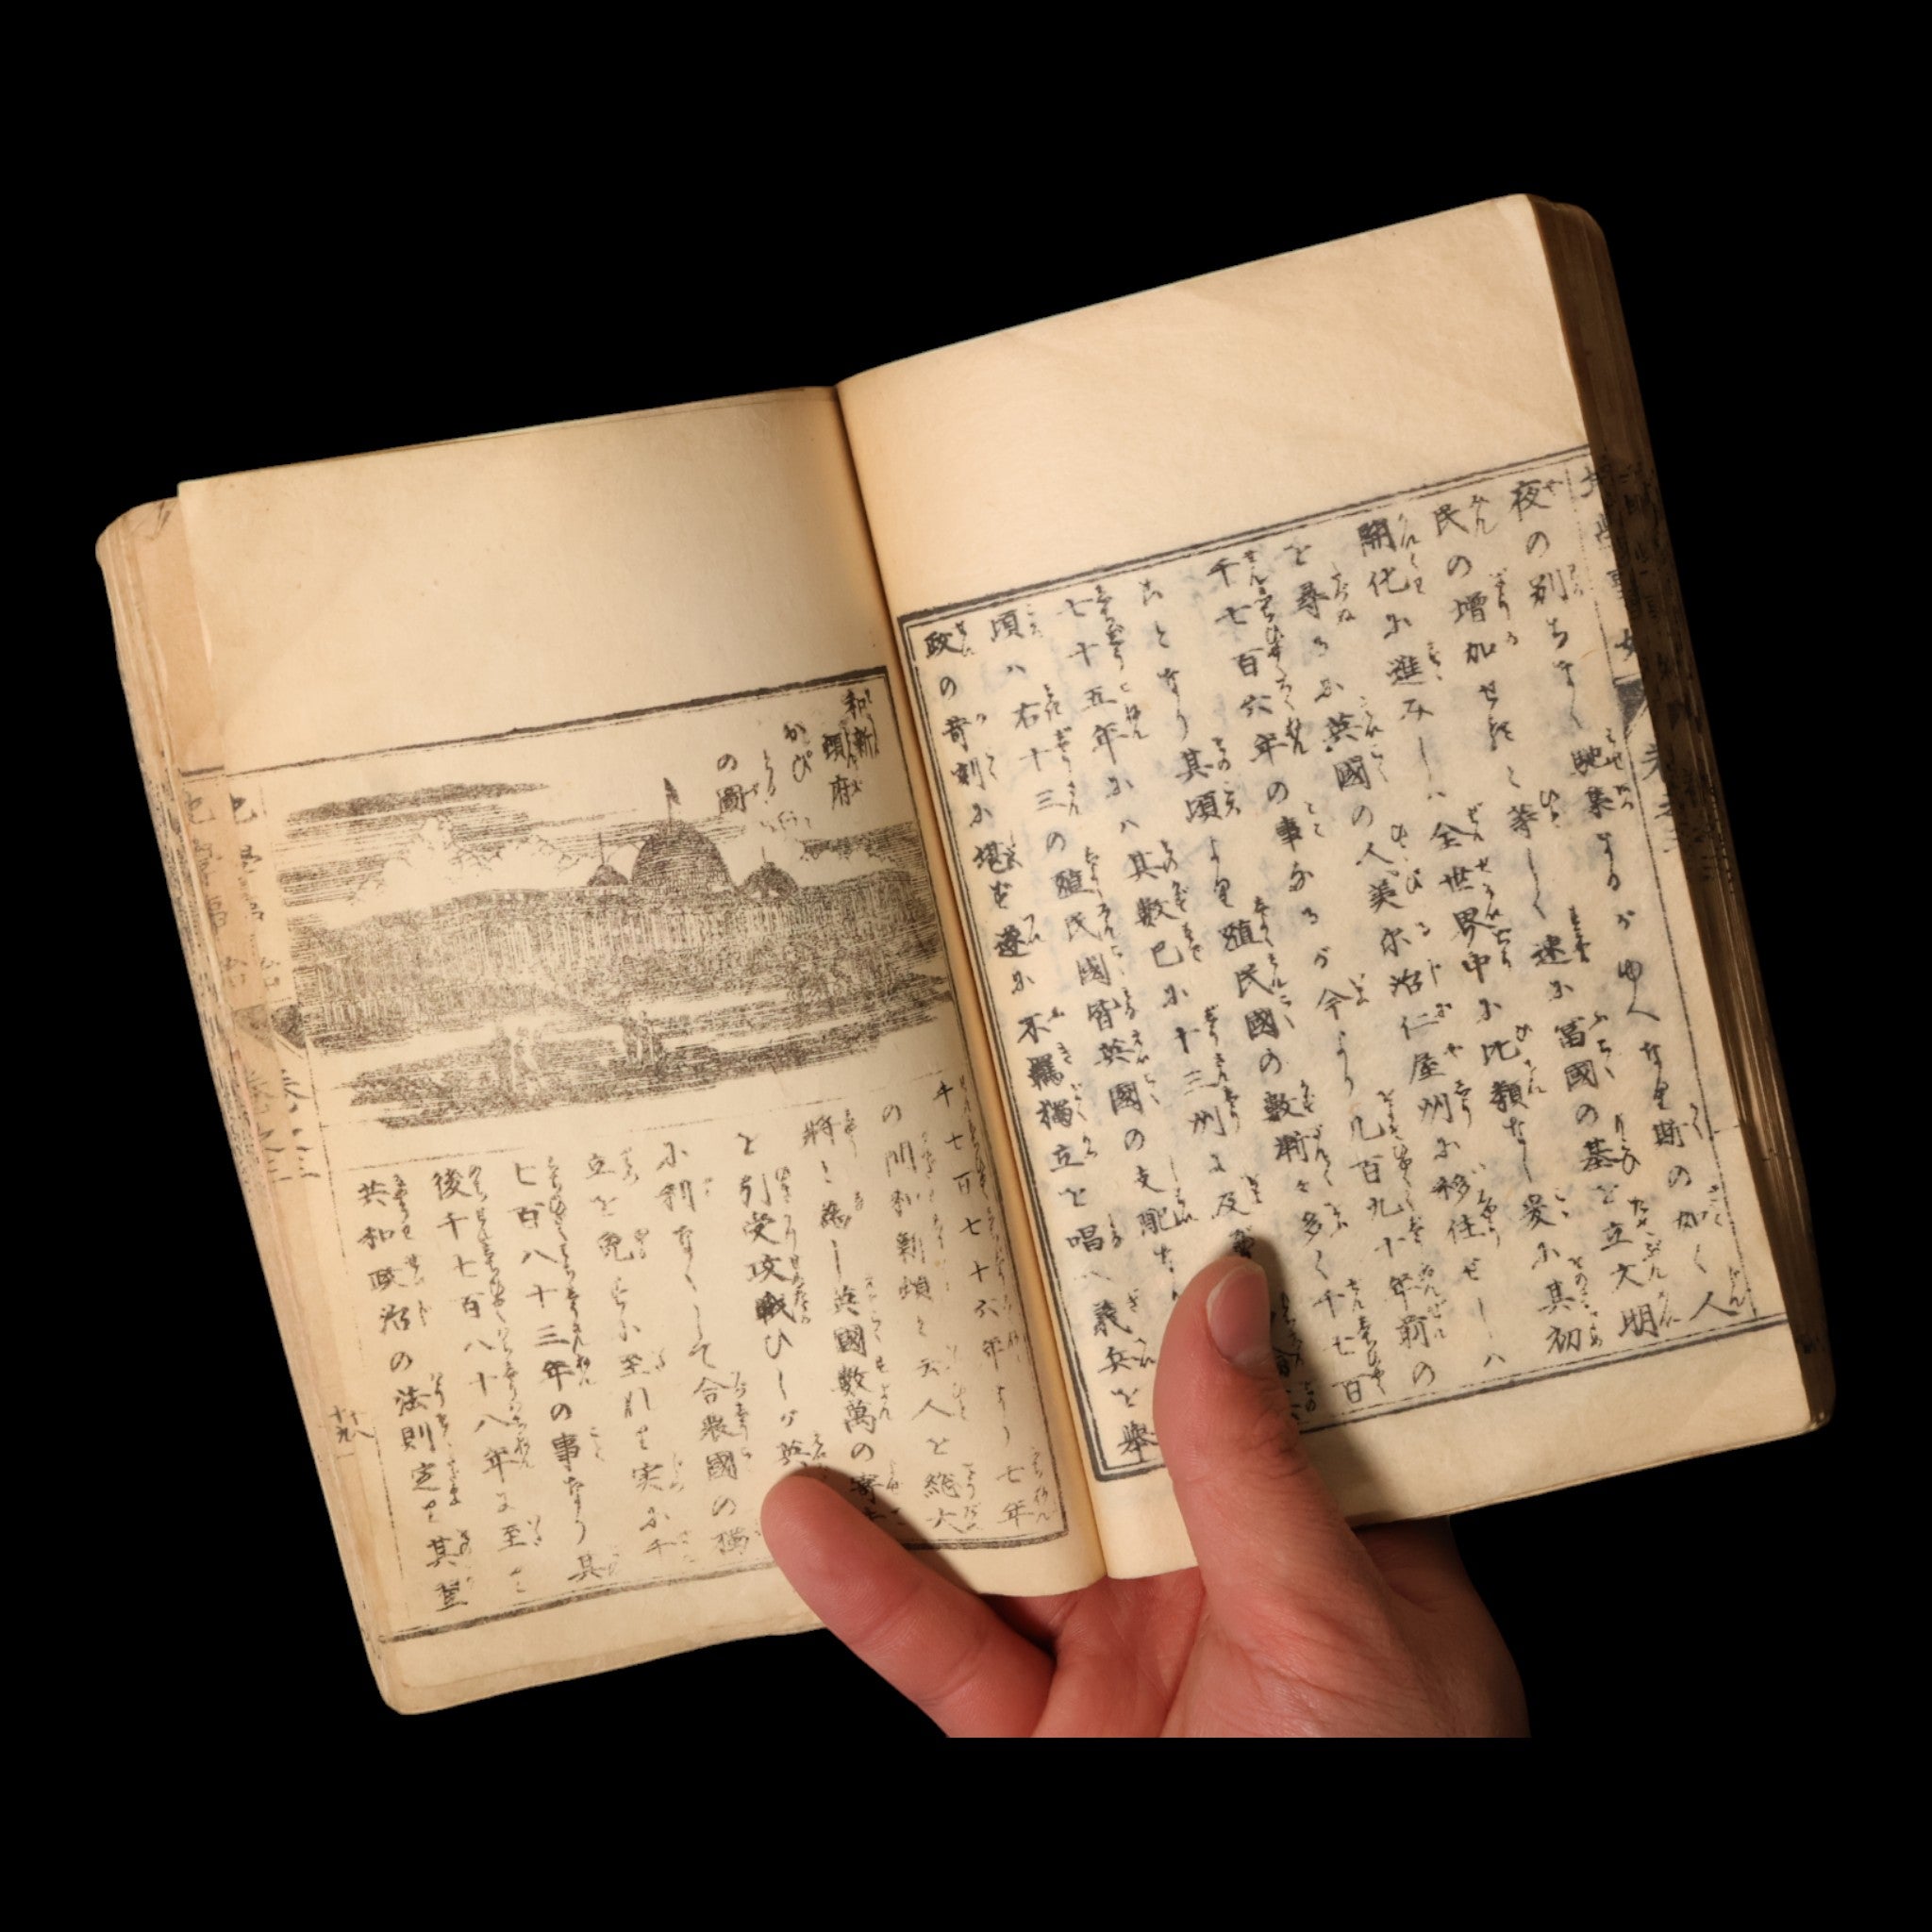 夜の別ちなく馳集なるがゆへなり斯の如く人
民の増加せ等しく速に富國の基を立大明
開化に進みしハ全世界中に比類なし爰に其初
を尋るに英國の人美尓治仁屋州に移住せしハ
千七百六年の事なるが今より凡百九十年前の
ことなり其頃より殖民國の數漸々多く千七百
七十五年にハ其數已に十三州に及
頃ハ右十三の殖民國皆英國の支配な
政の苛刻に堪ず遂に不羈獨立を唱へ義兵を舉
和新頓府
かぴとる
の圖
千七百七十六年より七年
の間和新頓と云人を總大
將と為し英國數萬の寄
を引受攻戰ひしが英
小利なくして合衆國の獨
立を免るに至れり実に千
七百八十三年の事なり其
後千七百八十八年に至り
共和政治の法則定り其翌